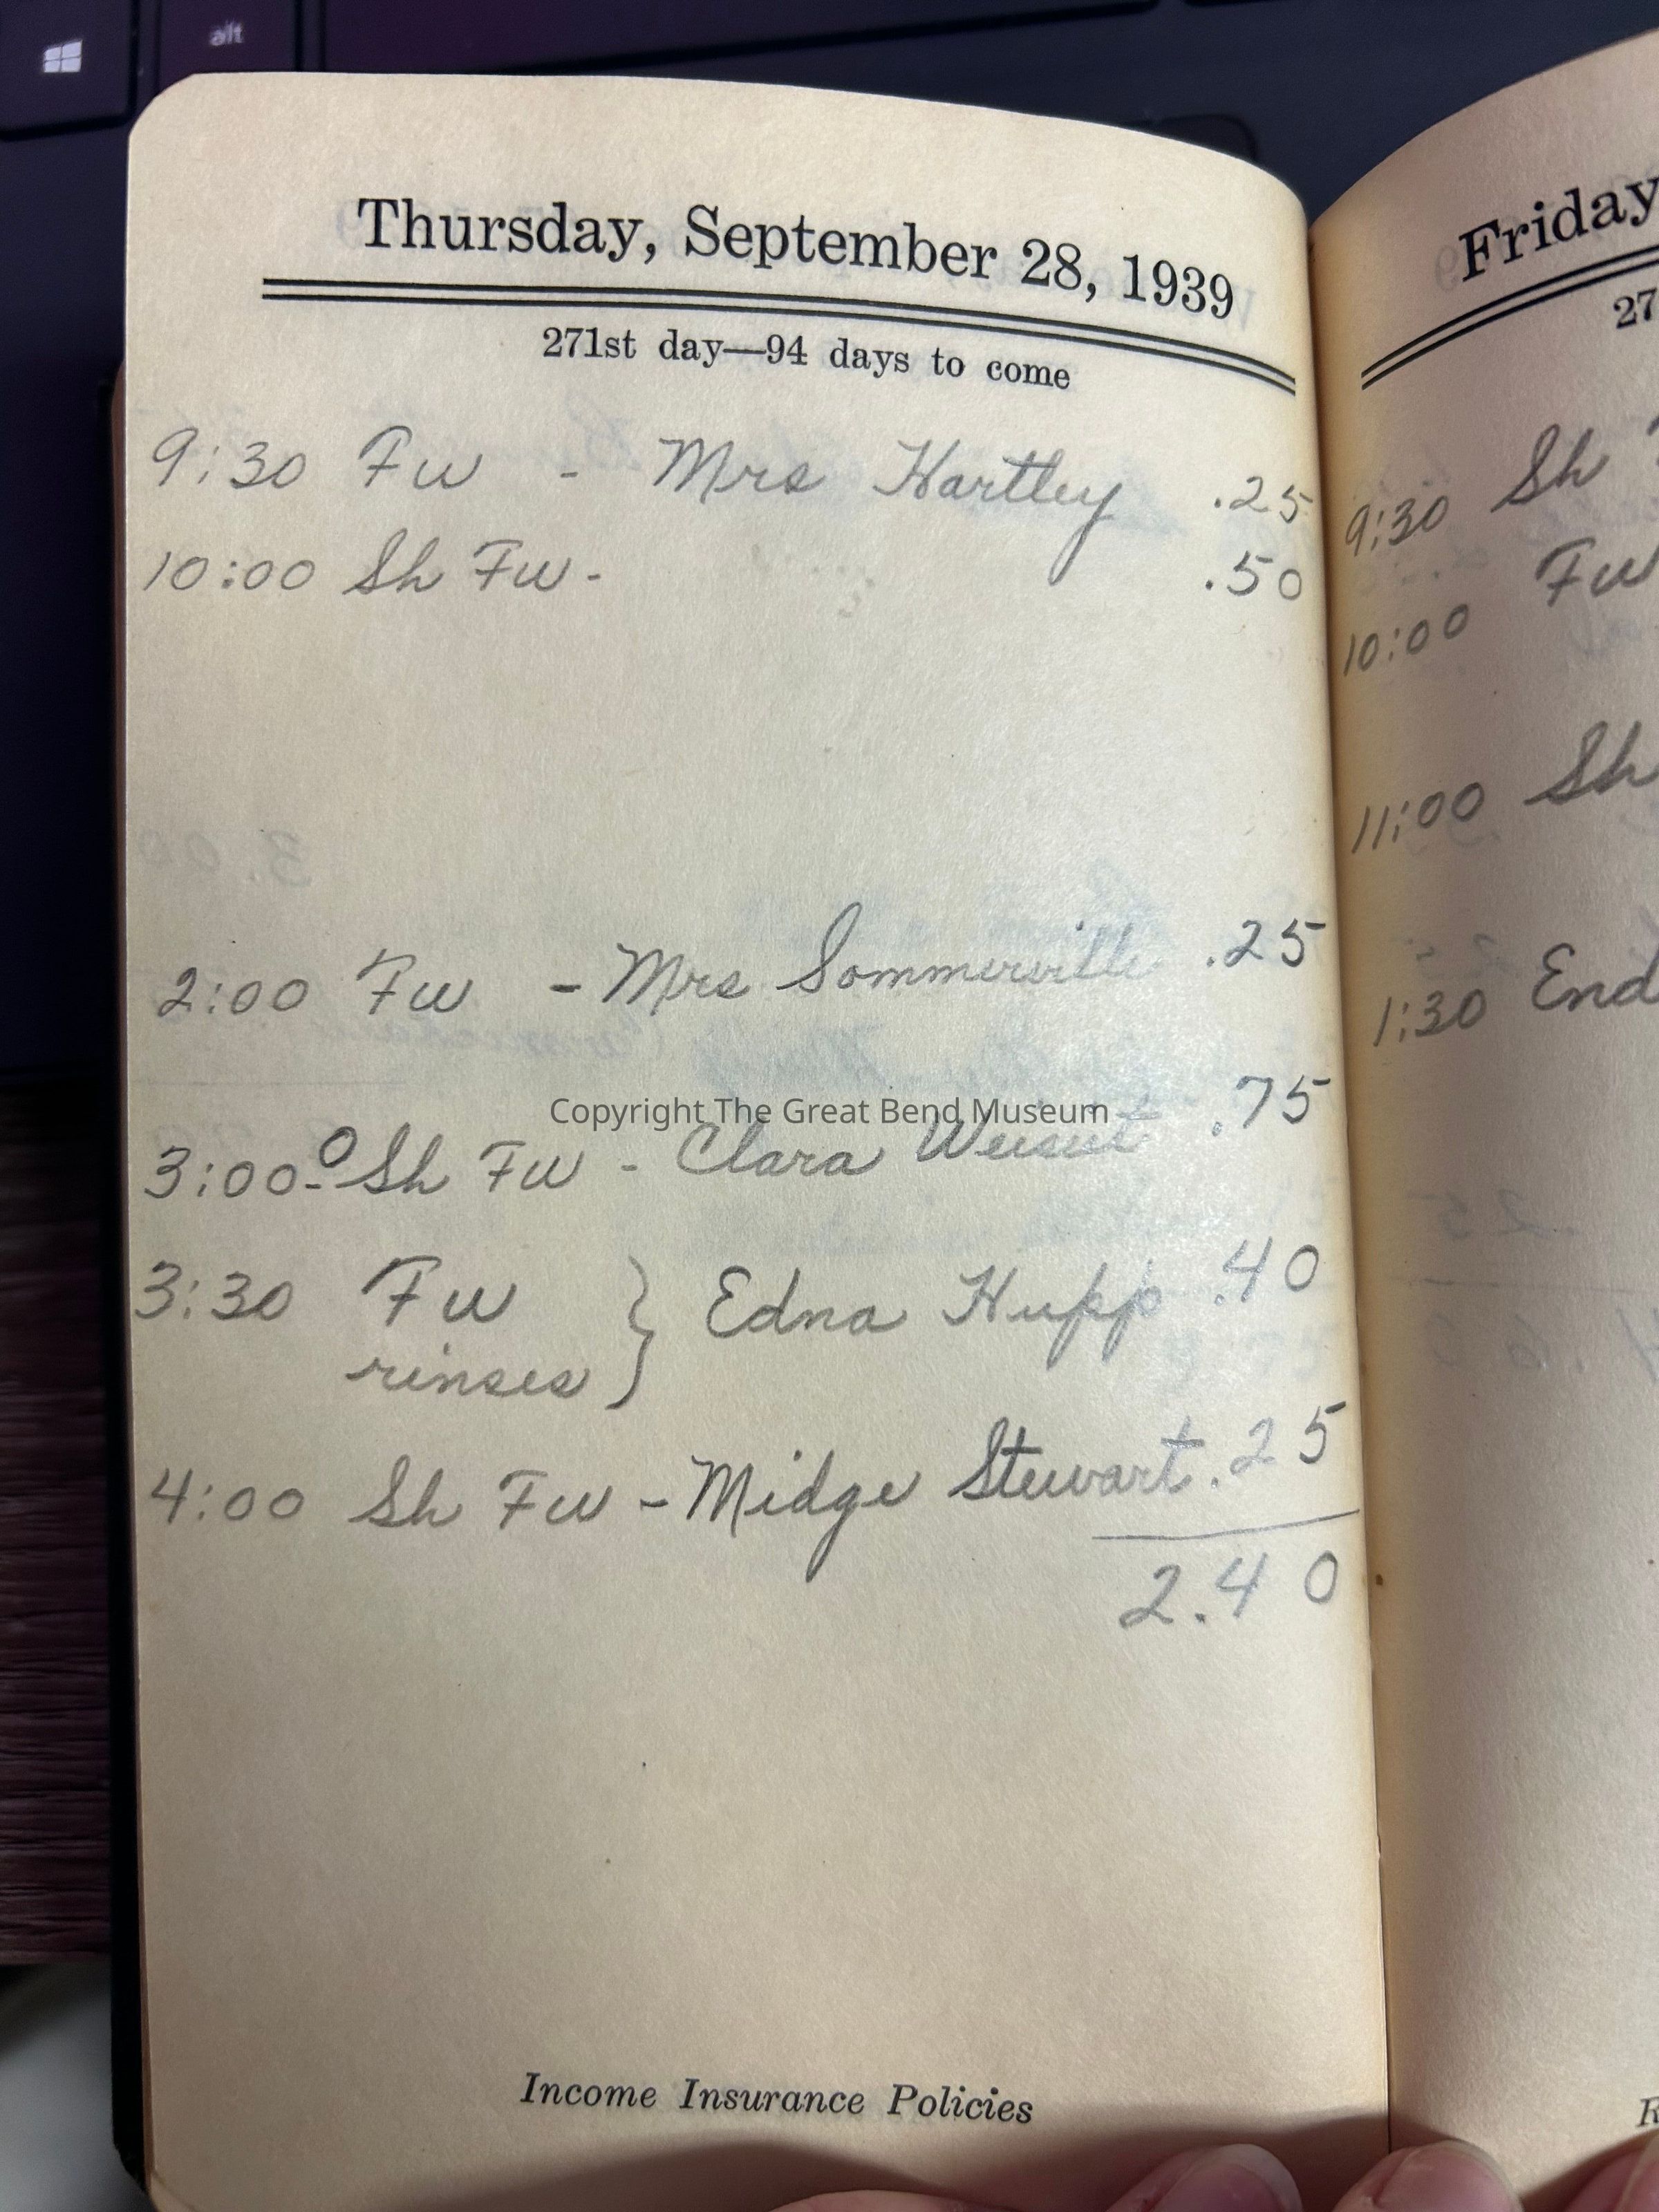 alt
Thursday, September 28, 1939
271st day—94 days to come
9:30 Fw - Mrs Hartley .25
10:00 Sh Fw - .50
2:00 Fw - Mrs Sommerville .25
3:00 - O Sh Fw - Clara .75
Copyright The Great Bend Museum
3:30 Fw } Edna Hupp .40
rinses
4:00 Sh Fw - Midge Stewart .25
2.40
Income Insurance Policies
Friday
27
9:30 Sh
10:00 Fw
11:00 Sh
1:30 End